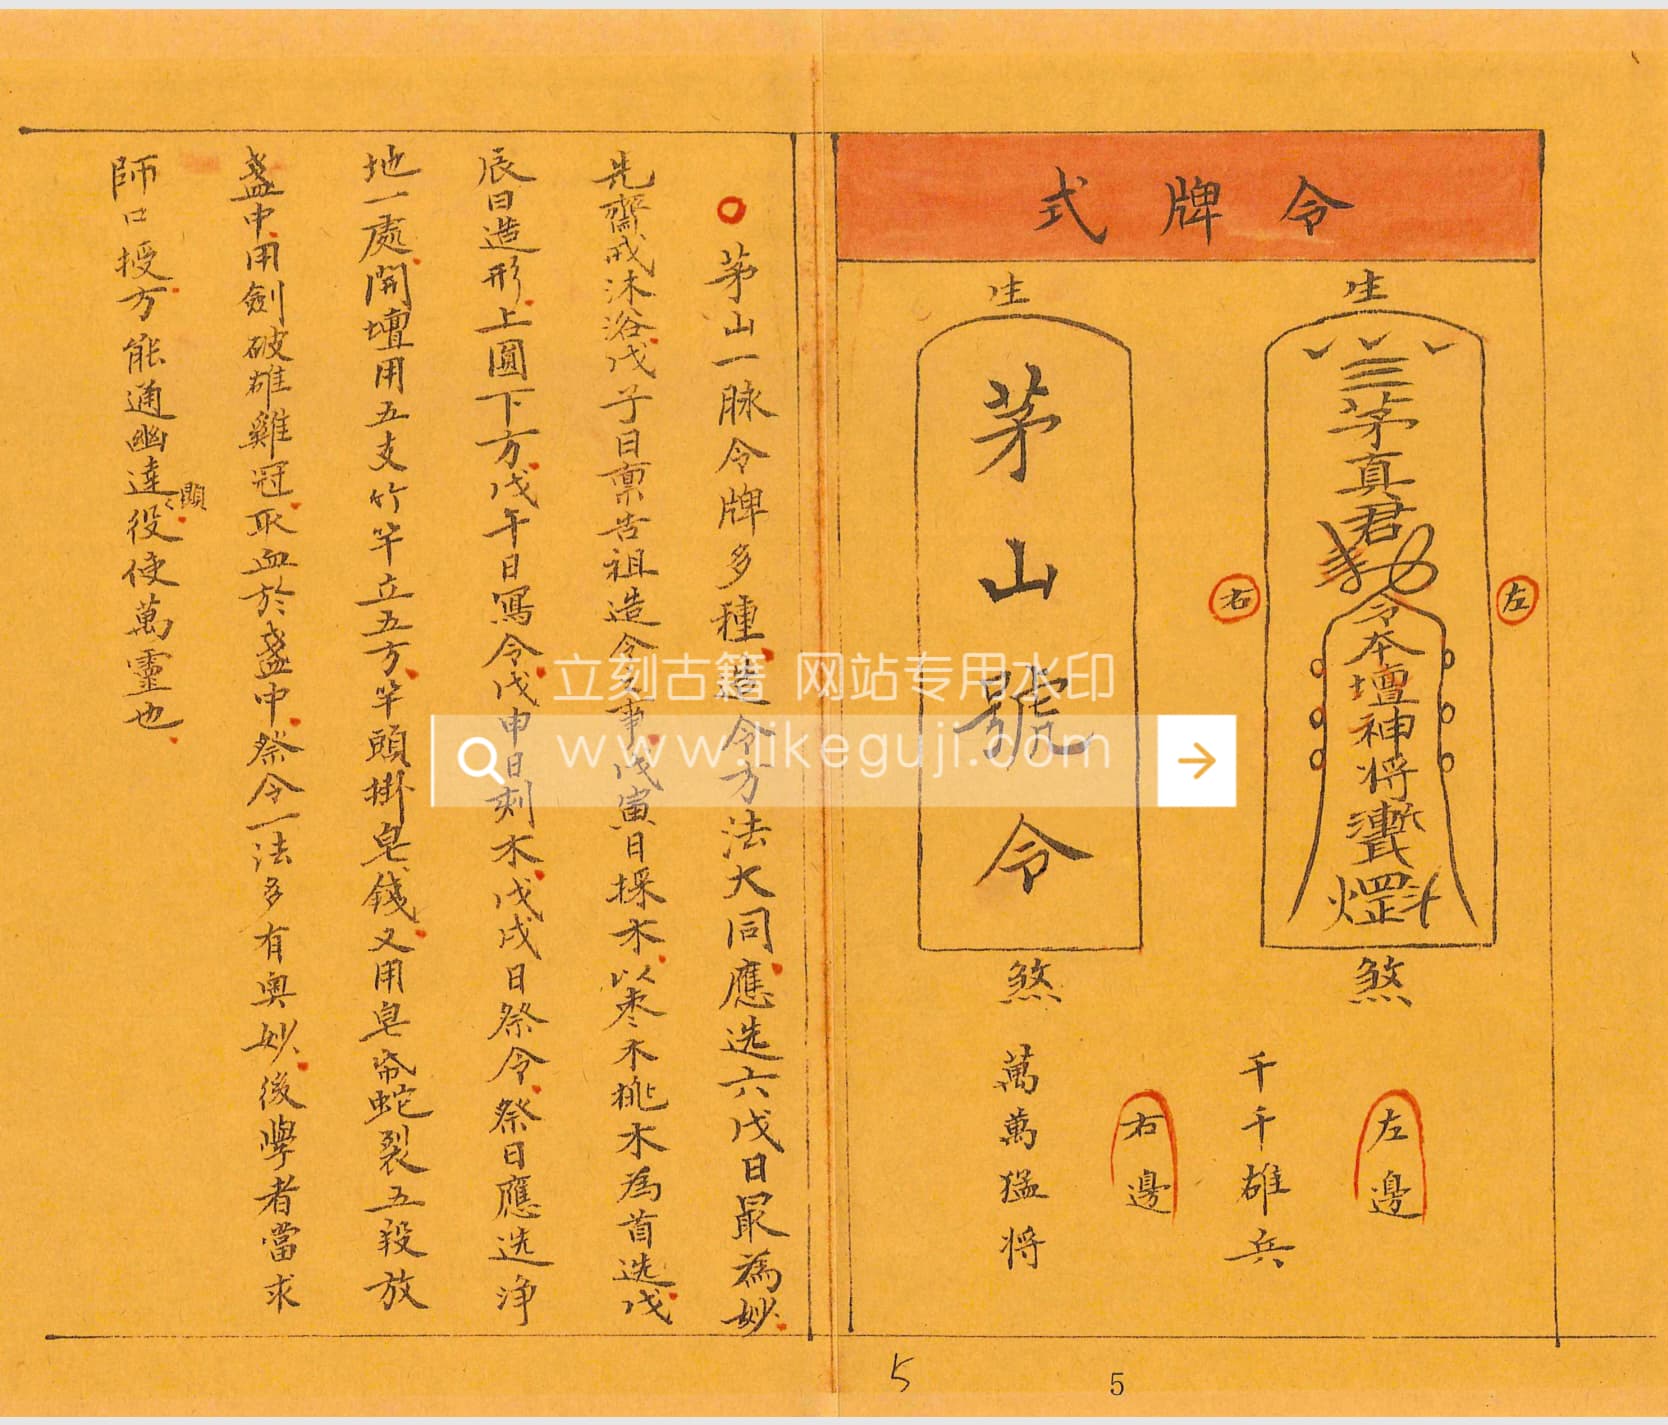 令牌式
生
三茅真君
令本壇神将
煞
左
右
生
茅山號令
煞
左邊
千千雄兵
右邊
萬萬猛将
茅山一脉令牌多種造令方法大同應选六戊日最為妙
先齋戒沐浴戊子日禀告祖造令之事戊寅日採木以枣木桃木為首选戊
辰日造形上圓下方戊午日寫令戊申日刻木戊戌日祭令祭日應选净
地一處開壇用五支竹竿立五方竿頭掛皂錢又用皂帋蛇裂五段放
盞中用劍破雄雞冠取血於盞中祭令一法多有奥妙後學者當求
師口授方能通幽達顯役使萬靈也
立刻古籍 网站专用水印
www.likeguji.com
5
5